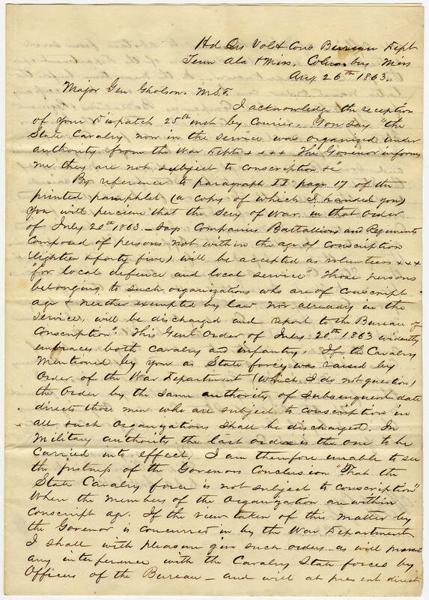 Hd Qrs Vol & Con Bureau Dept
Tenn Ala & Miss, Columbus Miss
Aug 26th 1863.
Major Gen Gholson. M.S.T.
I acknowledge the reception
of your Dispatch 25th inst by Courier. You say "the
State Cavalry now in the service was organized under
authority from the War Dept x x x x The Governor informs
me they are not subject to conscription &c
By reference to paragraph II page 17 of the
printed pamphlet (a copy of which I handed you)
you will perceive that the Secy of War, in that order
of July 20th 1863 – Says Companies Battallions and Regiments
Composed of persons not within the age of Conscription
(eighteen & forty five) will be accepted as volunteers x x x
"for local defence and local service" Those persons
belonging to such organizations who are of conscript
age & neither exempted by law nor already in the
service, will be discharged and report to the Bureau of
Conscription". This Genl Order of July 20th 1863 evidently
embraces both cavalry and infantry. If the Cavalry
mentioned by you as State forces was raised by
Order of the War Department (which I do not question)
the Order by the same authority of subsequent date
directs those men who are subject to conscription in
all such Organizations shall be discharged. In
Military authority the last order is the one to be
Carried into effect, I am therefore unable to see
the justness of the Governors Conclusion "That the
State Cavalry force is not subject to conscription"
When the members of the Organization are within
Conscript age. If the view taken of this matter by
the Governor is concurred in by the War Department
I shall with pleasure give such orders as will prevent
any interference with the Cavalry State forces by
Officers of the Bureau – and will at present direct